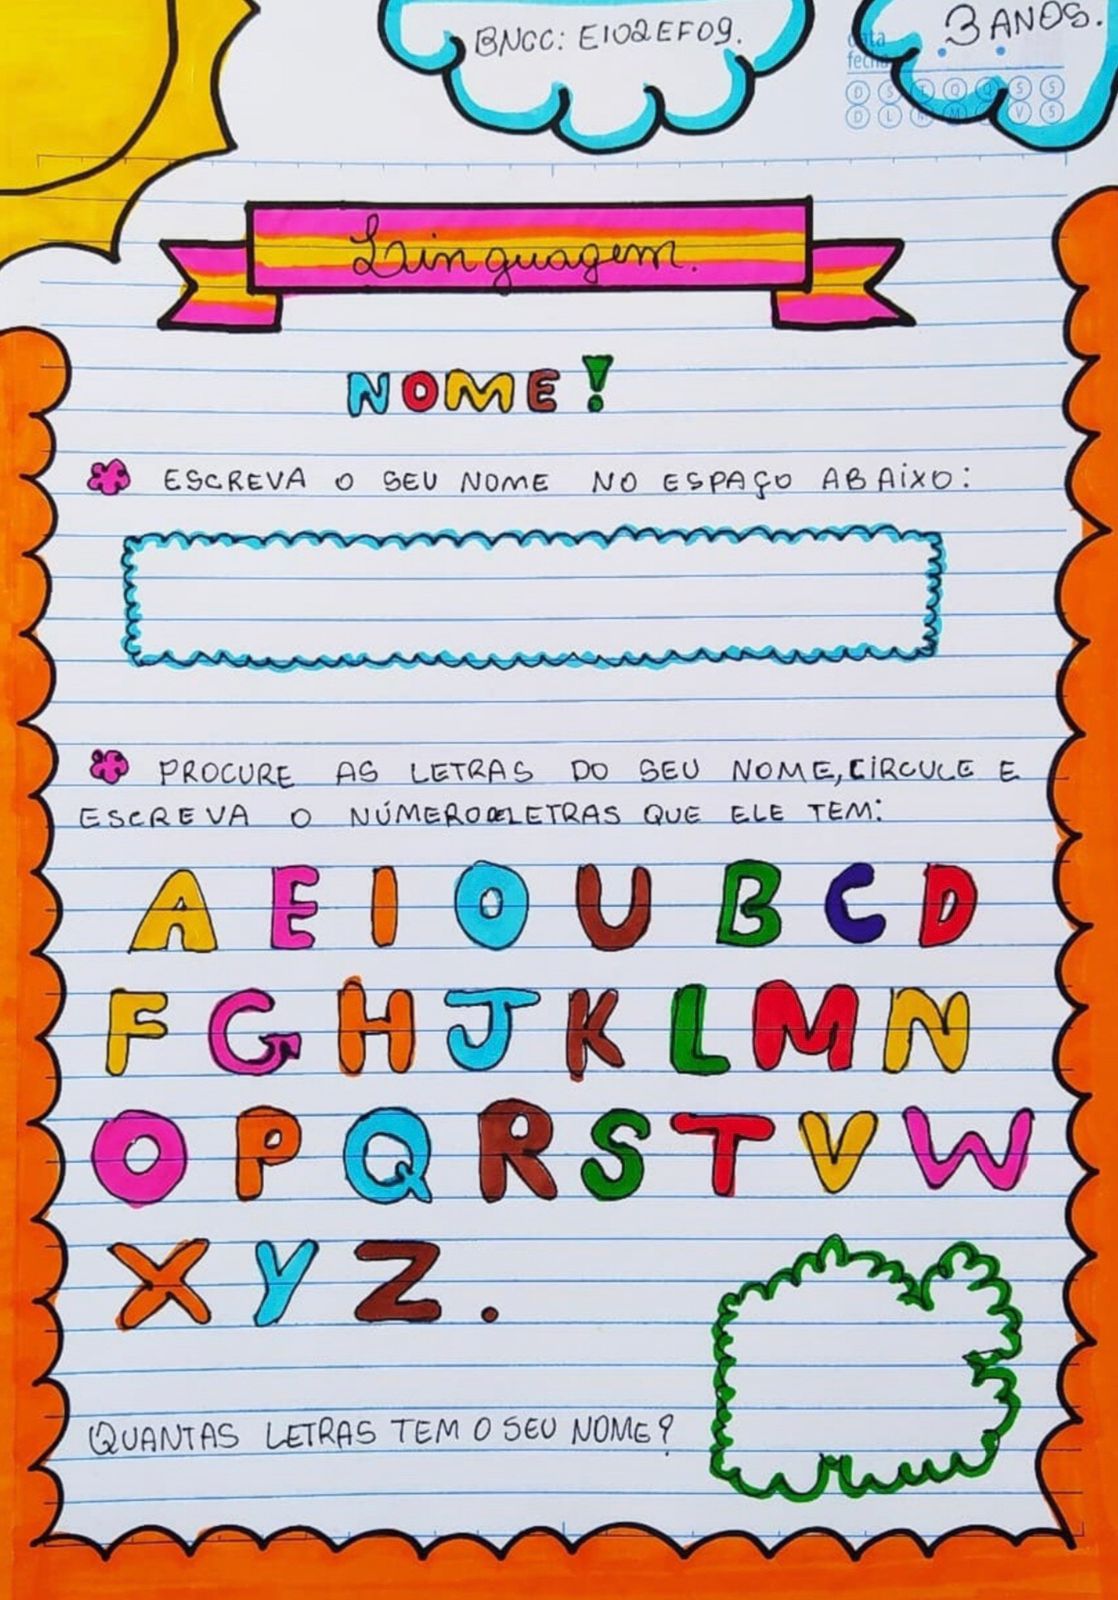 BNCC: EI02EF09.
3 ANOS.
data
fecha
D S T Q Q S S
D L M M J V S
Linguagem.
NOME!
ESCREVA O SEU NOME NO ESPAÇO ABAIXO:
PROCURE AS LETRAS DO SEU NOME, CIRCULE E
ESCREVA O NÚMERO DE LETRAS QUE ELE TEM:
A E I O U B C D
F G H J K L M N
O P Q R S T V W
X Y Z.
QUANTAS LETRAS TEM O SEU NOME?